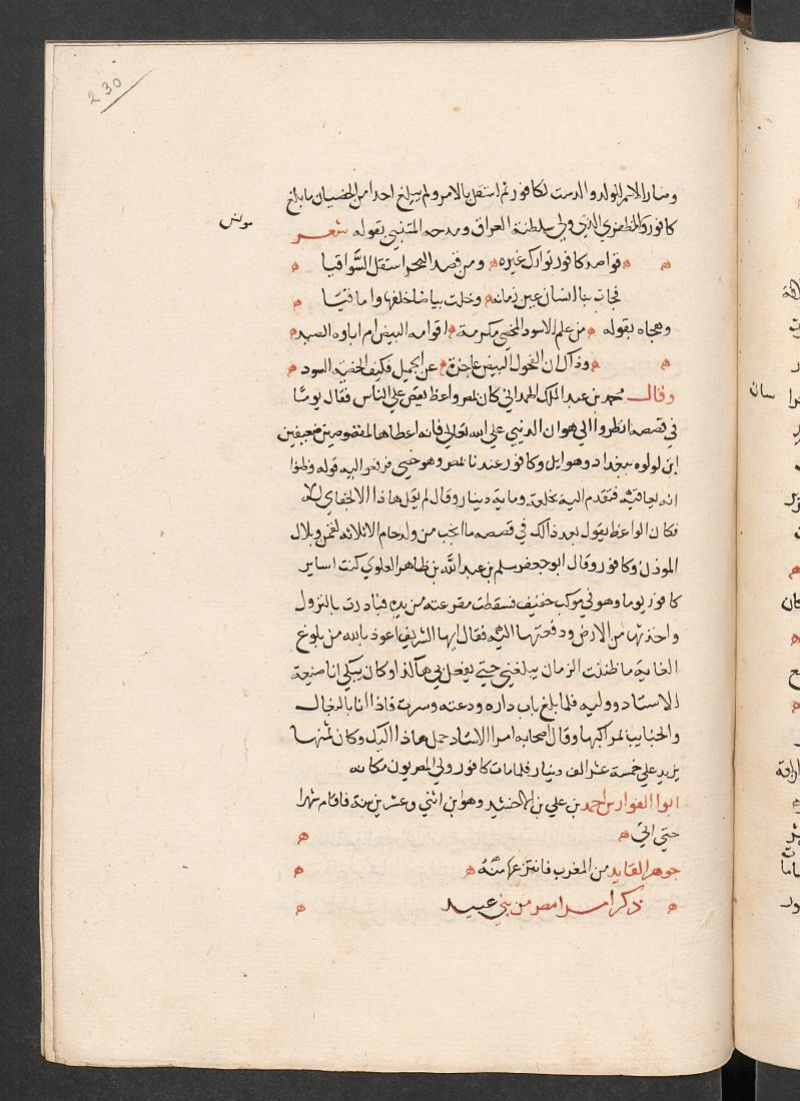 230
وصار الاسم للولد والدست لكافور ثم استقل بالامر ولم يبلغ احدا من الخصيان ما بلغ
كافور والمظفري الذي ولى سلطنة العراق ومدحه المتنبي بقوله شعر
مونس
قواصد كافور توارك غيره ومن قصد البحر استقل السواقيا
فجات بنا انسان عين زمانه وخلت بياضا خلفها واماقيا
وهجاه بقوله من علم الاسود المخصي مكرمة اقوامه البيض ام اباوه الصيد
وذاك ان الفحول البيض عاجزة عن الجميل فكيف الخصيه السود
وقال محمد بن عبد الملك الهمداني كان بمصر واعظ يقص على الناس فقال يوما
في قصصه انظروا الي هوان الدنيي على الله تعالى فانه اعطاها المقصوصين ضعيفين
ابن لولوه ببغداد وهو ايل وكافور عندنا بمصر وهو خصي فرفعوا اليه قوله وظنوا
انه يعاقبه فتقدم اليه بخلعة وماية دينار وقال لم يقل هاذا الا لجفاي له
فكان الواعظ يقول بعد ذالك في قصصه ما انجب من ولد حام الا ثلاثه لقمن وبلال
الموذن وكافور وقال ابو جعفر مسلم بن عبد الله بن طاهر العلوي كنت اساير
كافور يوما وهو في موكب خفيف فسقطت مقرعته من يده فبادرت بالنزول
واخذتها من الارض ودفعتها اليه فقال ايها الشريف اعوذ بالله من بلوغ
الغاية ما ظننت الزمان يبلغني حتي يفعل بي هاكذا وكان يبكي انا صنيعة
الاستاد ووليه فلما بلغ باب داره ودعته وسرت فاذا انا بالبغال
والجنايب بمراكبها وقال اصحابه امر الاستاد حمل هاذا اليك وكان ثمنها
يزيد علي خمسة عشر الف دينار فلما مات كافور ولي المصريون مكانه
ابوا الفوارس احمد بن علي بن الاخشيد وهو ابن اثني وعشرين سنة فاقام شهرا
حتي اتي
جوهر القايد من المغرب فانتزعها منه
ذكر امرا مصر من بني عبيد